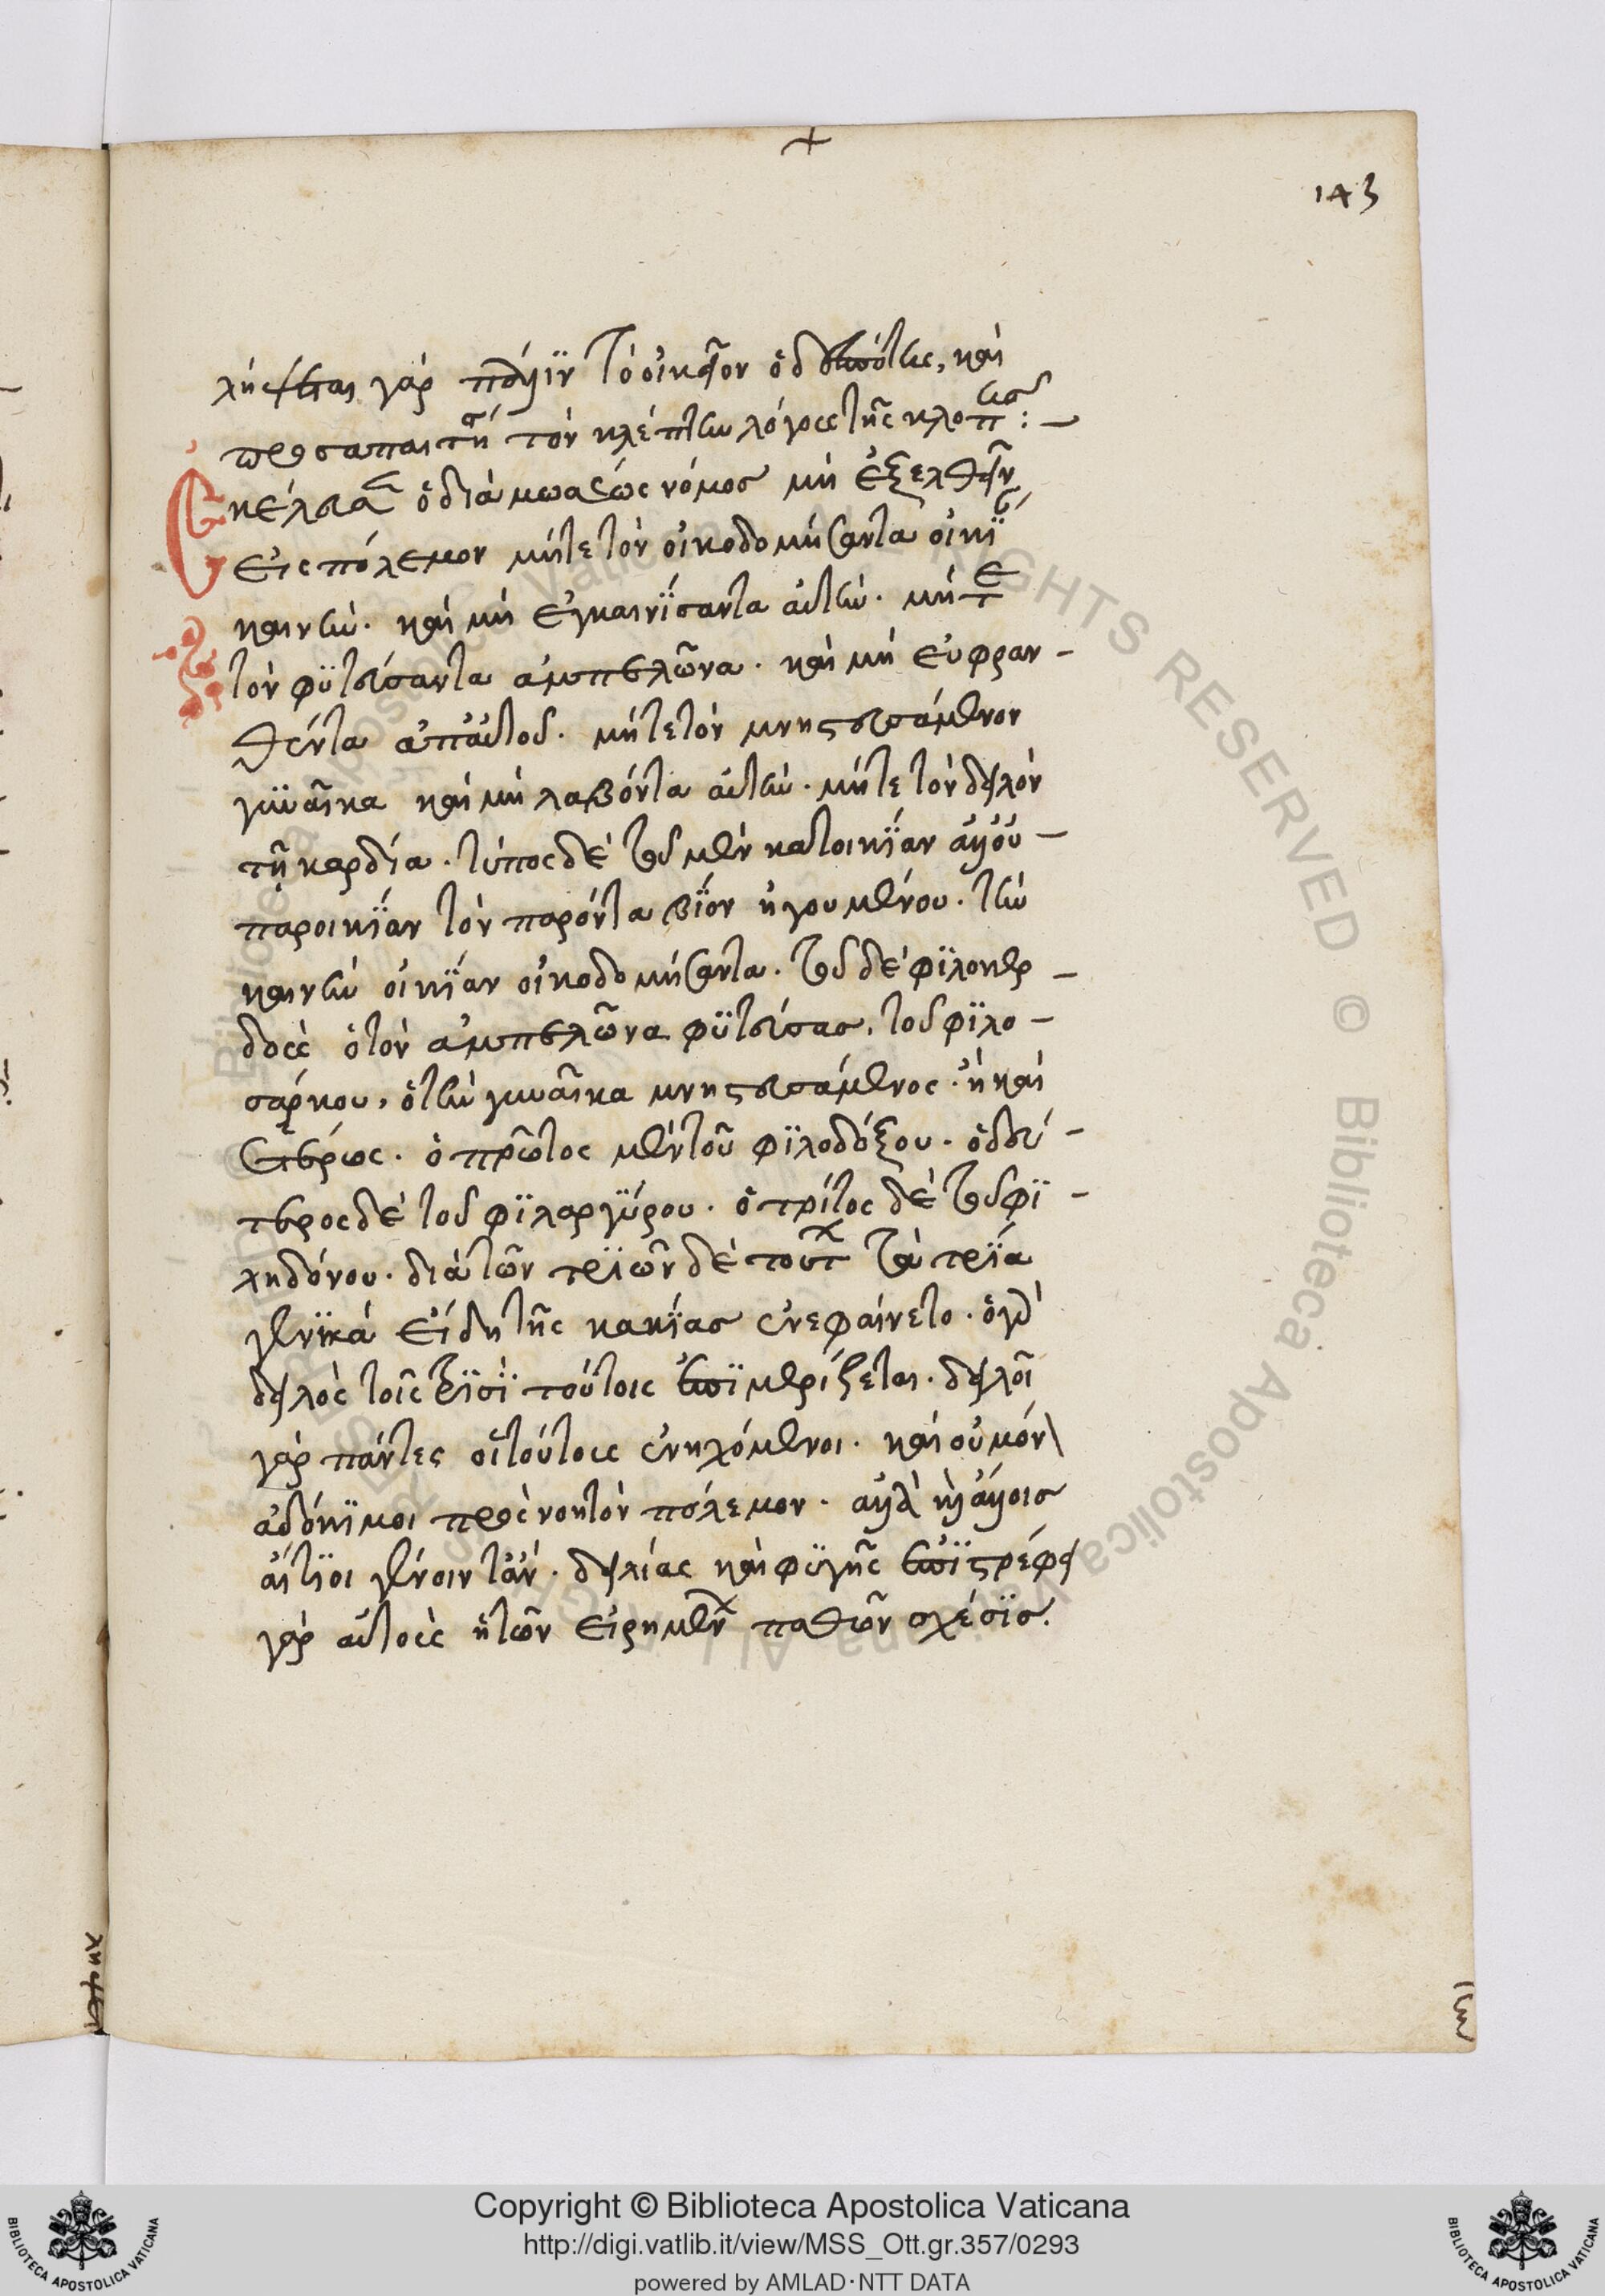 143
λήψεται γὰρ πάλιν τὸ οἰκεῖον ὁ δεσπότης, καὶ
προσαπαιτεῖ τὸν κλέπτην λόγους τῆς κλοπῆς :—
Ἐκέλευσεν ὁ διὰ μωσέως νόμος μὴ ἐξελθεῖν
εἰς πόλεμον μήτε τὸν οἰκοδομήσαντα οἰκίαν
καινήν. καὶ μὴ ἐγκαινίσαντα αὐτήν. μήτε
τὸν φϋτεύσαντα ἀμπελῶνα. καὶ μὴ εὐφραν-
θέντα ἀπ' αὐτοῦ. μήτε τὸν μνηστευσάμενον
γυναῖκα καὶ μὴ λαβόντα αὐτήν. μήτε τὸν δειλὸν
τῇ καρδία. τύπος δὲ τοῦ μὲν κατοικΐαν ἀλλ' οὐ-
παροικΐαν τὸν παρόντα βΐον ἡγουμένου. τὴν
καινὴν οἰκΐαν οἰκοδομήσαντα. τοῦ δὲ φϊλοκερ-
δοὺς ὁ τὸν ἀμπελῶνα φϋτεύσας. τοῦ φϊλο-
σάρκου, ὁ τὴν γυναῖκα μνηστευσάμενος. ἢ καὶ
ἑτέρως. ὁ πρῶτος μὲν τοῦ φϊλοδόξου. ὁ δεύ-
τερος δὲ τοῦ φϊλαργΰρου. ὁ τρίτος δὲ τοῦ φϊ-
ληδόνου. διὰ τῶν τριῶν δὲ τούτων τὰ τρΐα
γενϊκὰ εἴδη τῆς κακΐας ἐνεφαίνετο. ὁ γὰρ
δειλὸς τοῖς τρϊσῒ τούτοις ἐπϊμερίζεται. δειλοὶ
γὰρ πάντες οἱ τούτοις ἐνηχόμενοι. καὶ οὐ μόνον
ἀδόκϊμοι πρὸς νοητὸν πόλεμον. ἀλλὰ καὶ ἄλλοις
αἴτϊοι γένοιντ' ἄν. δειλίας καὶ φϋγῆς ἐπϊστρέφει
γὰρ αὐτοὺς ἡ τῶν εἰρημένων παθῶν σχέσϊς.
Copyright © Biblioteca Apostolica Vaticana
http://digi.vatlib.it/view/MSS_Ott.gr.357/0293
powered by AMLAD·NTT DATA